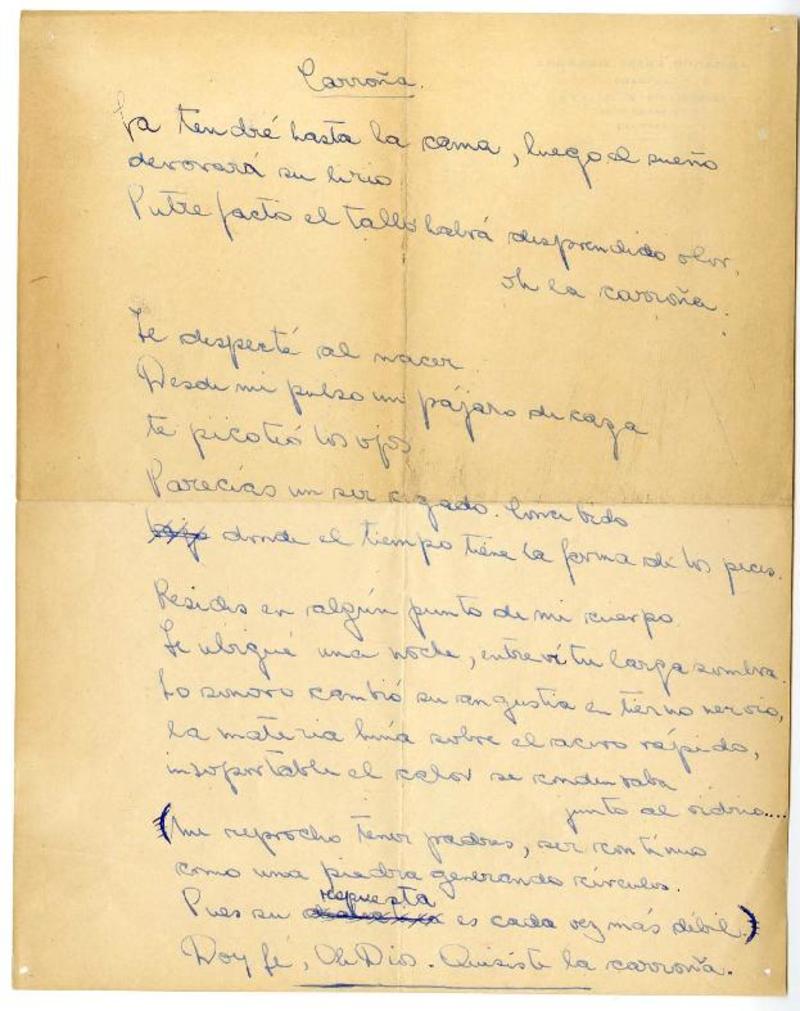 Carroña.
La tendré hasta la cama, luego el sueño
devorará su lirio
Putrefacto el tallo habrá desprendido olor,
oh la carroña.
Te desperté al nacer
Desde mi pulso un pájaro de caza
te picoteó los ojos
Parecías un ser cegado. Concebido
donde el tiempo tiene la forma de los peces.
Resides en algún punto de mi cuerpo.
Te ubiqué una noche, entreví tu larga sombra.
Lo sonoro cambió su angustia en tierno nervio,
la materia huía sobre el acero rápido,
insoportable el calor se condensaba
junto al vidrio....
(Me reprocho tener padres, ser continuo
como una piedra generando círculos.
repuesta
Pues su es cada vez más débil.)
Doy fé, Oh Dios. Quisiste la carroña.